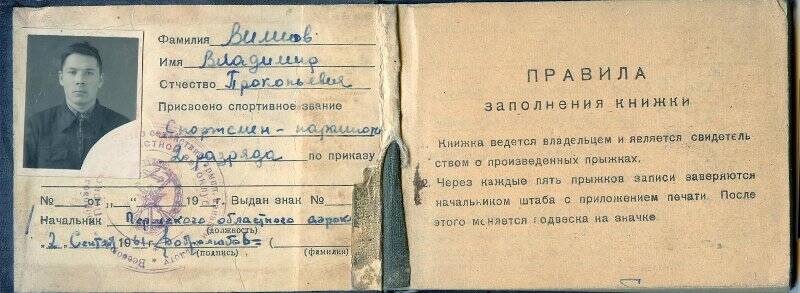 Фамилия Вилисов
Имя Владимир
Отчество Прокопьевич
Присвоено спортивное звание
Спортсмен-парашют
2 разряда по приказу
№ от „ “ 19 г. Выдан знак №
Начальник Пермского областного аэрок
(должность)
„2„ Сентяб 1961г. Добролюбов= (
(подпись) (фамилия)
ПРАВИЛА
заполнения книжки
Книжка ведется владельцем и является свидетель
ством о произведенных прыжках.
2. Через каждые пять прыжков записи заверяются
начальником штаба с приложением печати. После
этого меняется подвеска на значке.